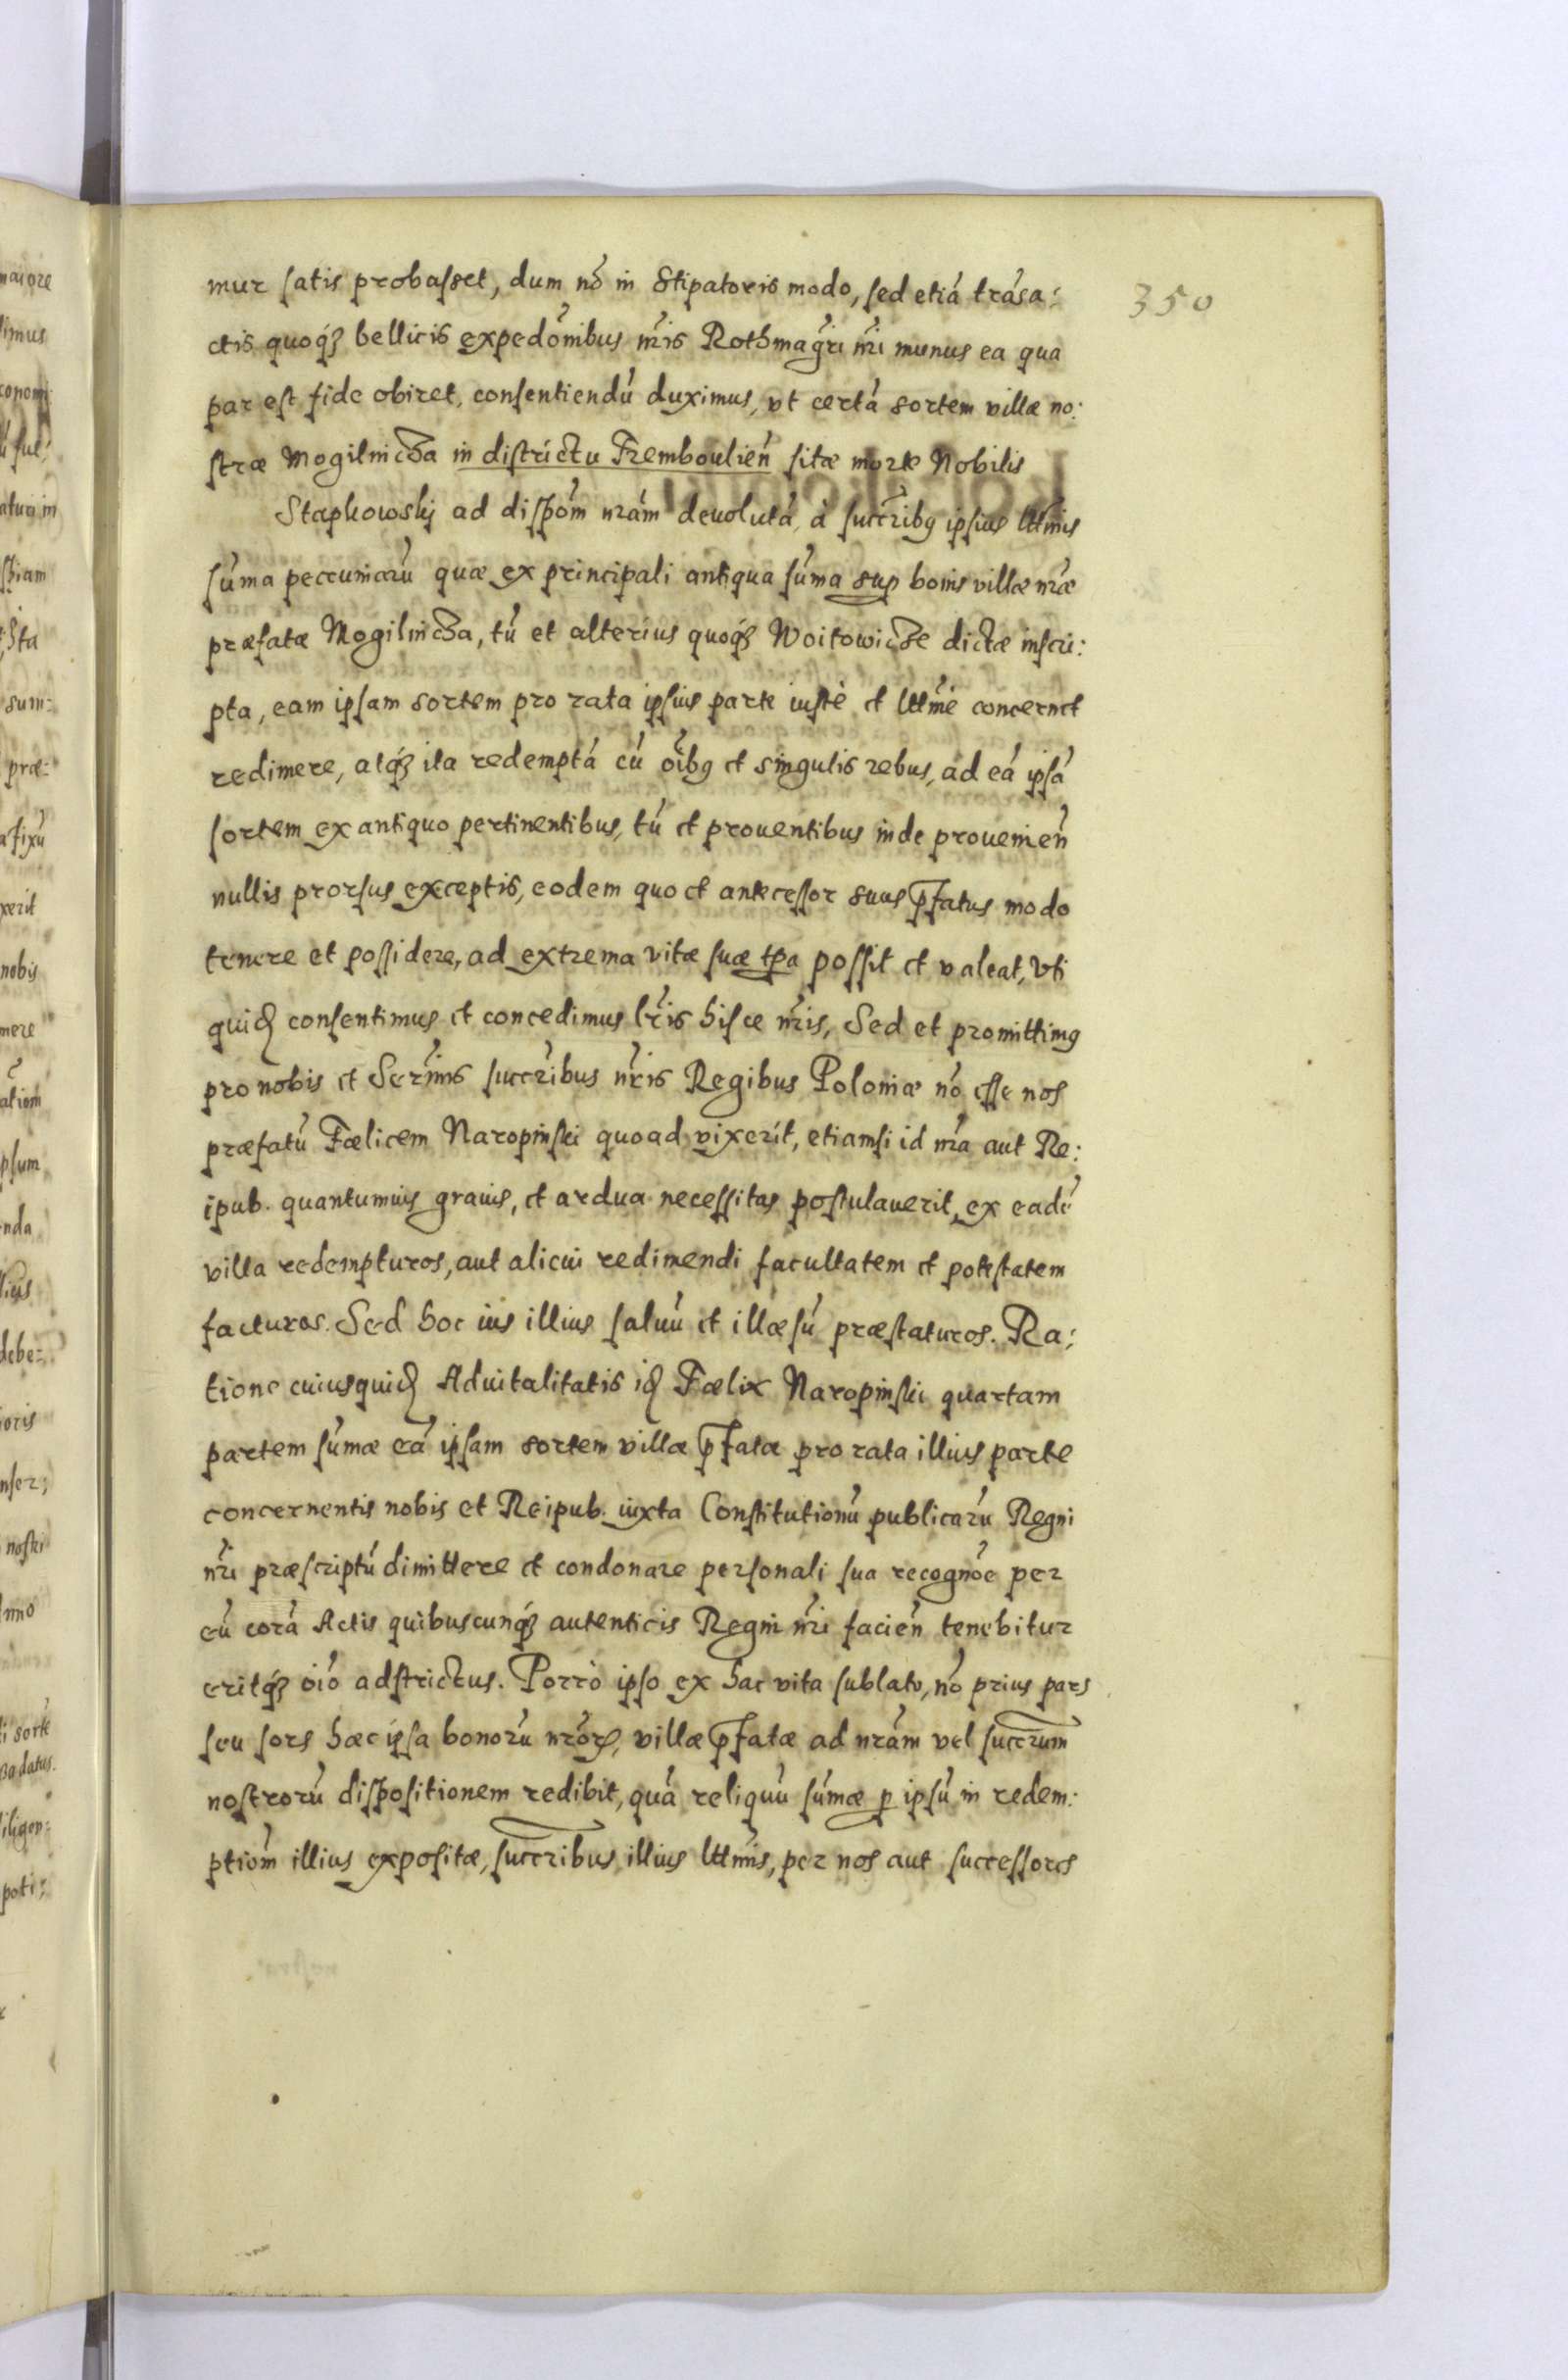 350
mur satis probasset, dum nō in Stipatoris modo, sed etiā trāsa:
ctis quoq́ȝ bellicis expedōnibus nr̄is Rothmagr̄i nr̄i munus ea qua
par est fide obiret, consentiendū duximus, vt certā sortem villæ no:
stræ Mogilnicza in districtu Tremboulień sitæ morte Nobilis
Stapkowskj ad dispōm nrām deuolutā, à succr̄ibꝯ ipsius lttīmis
sūma peccuniarū quæ ex principali antiqua sūma sup bonis villæ nr̄æ
præfatæ Mogilnicza, tū et alterius quoq́ȝ Woitowicze dictæ inscri:
pta, eam ipsam sortem pro rata ipsius parte iustè et lttīmè concernet
redimere, atq́ȝ ita redemptā cū oībꝯ et singulis rebus, ad eā ipsā
sortem ex antiquo pertinentibus, tū et prouentibus inde prouenień
nullis prorsus exceptis, eodem quo et antecessor suus p̄fatus modo
tenere et possidere, ad extrema vitæ suæ tp̄a possit et valeat, Vti
quid̨ consentimus et concedimus lr̄is hisce nr̄is, Sed et promittimꝯ
pro nobis et Serīmis succr̄ibus nr̄is Regibus Poloniæ nō esse nos
præfatū Fœlicem Naropinski quoad vixerit, etiamsi id nr̄a aut Re:
ipub. quantumuis grauis, et ardua necessitas postulauerit, ex eadē
villa redempturos, aut alicui redimendi facultatem et potestatem
facturos. Sed hoc ius illius saluū et illæsū præstaturos. Ra:
tione cuiusquid̨ Aduitalitatis id̨ Fœlix Naropinski quartam
partem sūmæ eā ipsam sortem villæ p̄fatæ pro rata illius parte
concernentis nobis et Reipub. iuxta Constitutionū publicarū Regni
nr̄i præscriptū dimittere et condonare personali sua recognōe per
eū corā Actis quibuscunq́ȝ autenticis Regni nr̄i facień tenebitur
eritq́ȝ oīo adstrictus. Porrò ipso ex hac vita sublato, nō prius pars
seu sors hæc ipsa bonorū nrōꝝ, villæ p̄fatæ ad nrām vel succr̄um
nostrorū dispositionem redibit, quā reliquū sūmæ ꝑ ipsū in redem:
ptiōm illius expositæ, succr̄ibus illius lttīmis, per nos aut successores